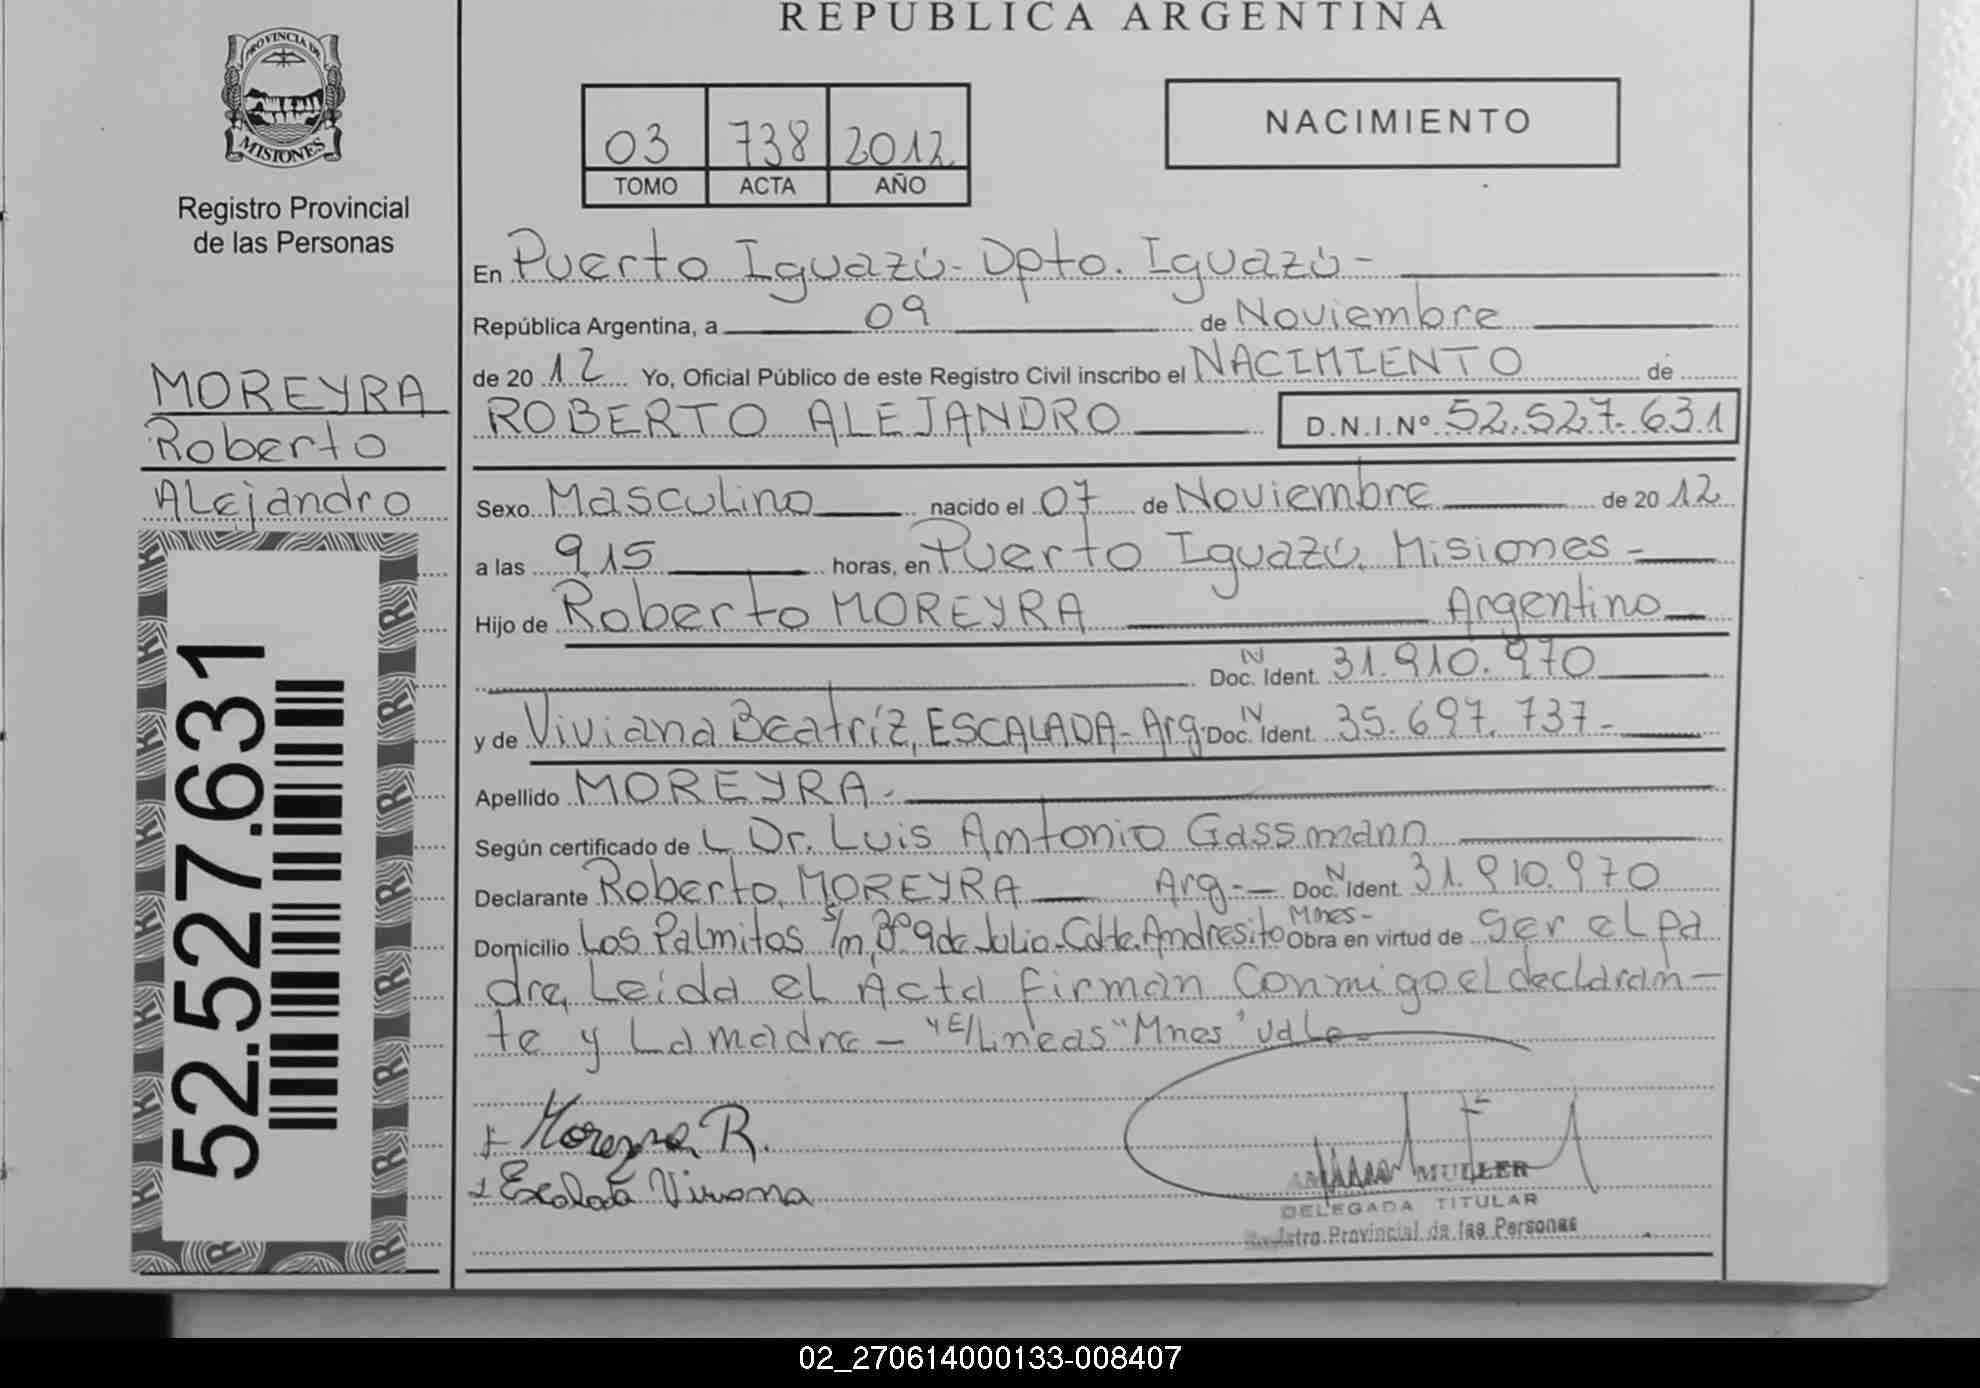 REPUBLICA ARGENTINA
PROVINCIA DE
MISIONES
Registro Provincial
de las Personas
03 738 2012
TOMO ACTA AÑO
NACIMIENTO
En Puerto Iguazú - Dpto. Iguazú -
República Argentina, a 09 de Noviembre
de 2012 Yo, Oficial Público de este Registro Civil inscribo el NACIMIENTO de
ROBERTO ALEJANDRO D.N.I.Nº 52.527.631
MOREYRA
Roberto
ALejandro
Sexo Masculino nacido el 07 de Noviembre de 2012
a las 9,15 horas, en Puerto Iguazú, Misiones -
Hijo de Roberto MOREYRA Argentino
Doc. N Ident. 31.910.970
y de Viviana Beatríz, ESCALADA - Arg. Doc. N Ident. 35.697.737 -
Apellido MOREYRA -
Según certificado de L Dr. Luis Antonio Gassmann
Declarante Roberto, MOREYRA Arg - Doc. N Ident. 31.910.970
Domicilio Los Palmitos s/n, Bº 9 de Julio - Cdte. Andresito Mnes - Obra en virtud de ser el pa
dre, Leida el Acta firman conmigo el declaran-
te y La madre - "E/Lineas "Mnes" vale
Moreyra R.
Escalada Viviana
MULLER
DELEGADA TITULAR
Registro Provincial de las Personas
52.527.631
02_270614000133-008407